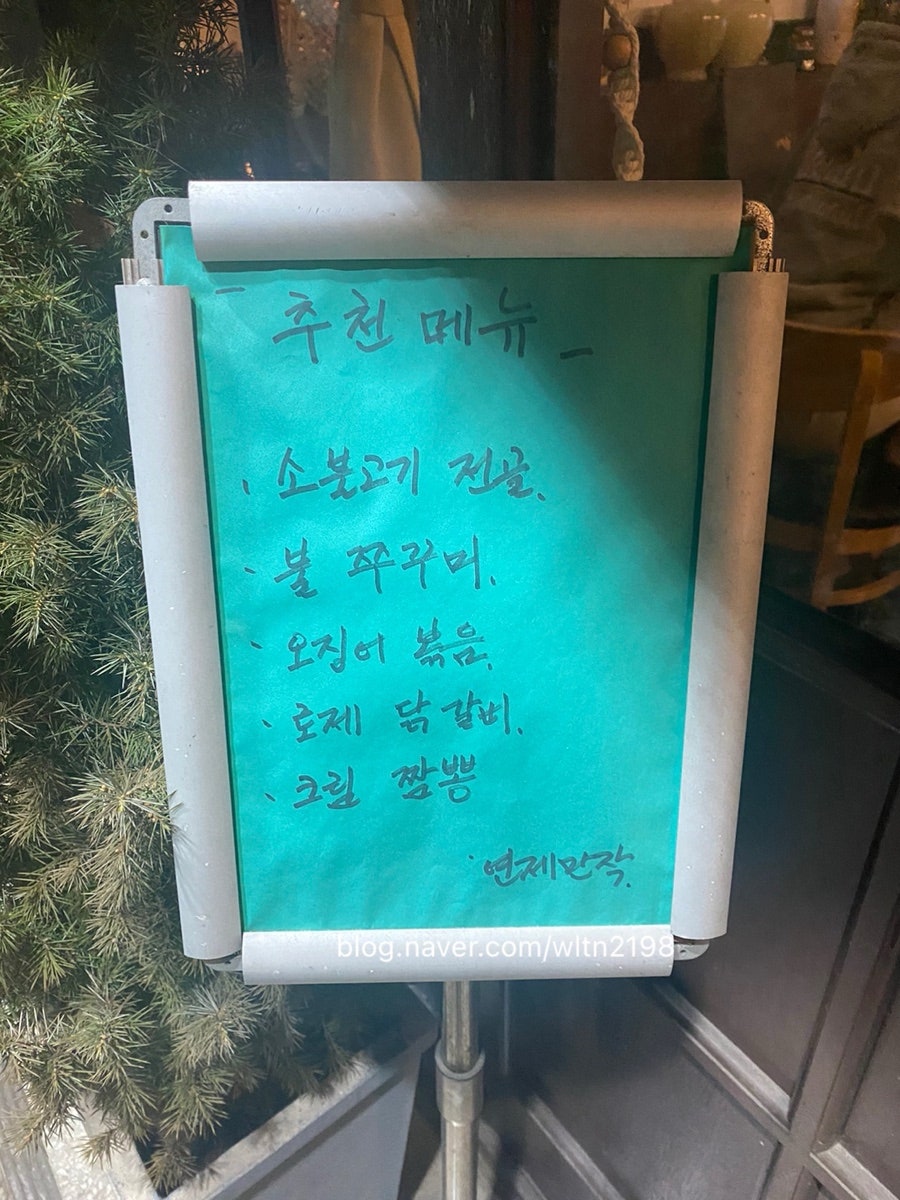 - 추천 메뉴 -
· 소불고기 전골.
· 불 쭈꾸미.
· 오징어 볶음.
· 로제 닭갈비.
· 크림 짬뽕
연제만작.
blog.naver.com/wltn2198